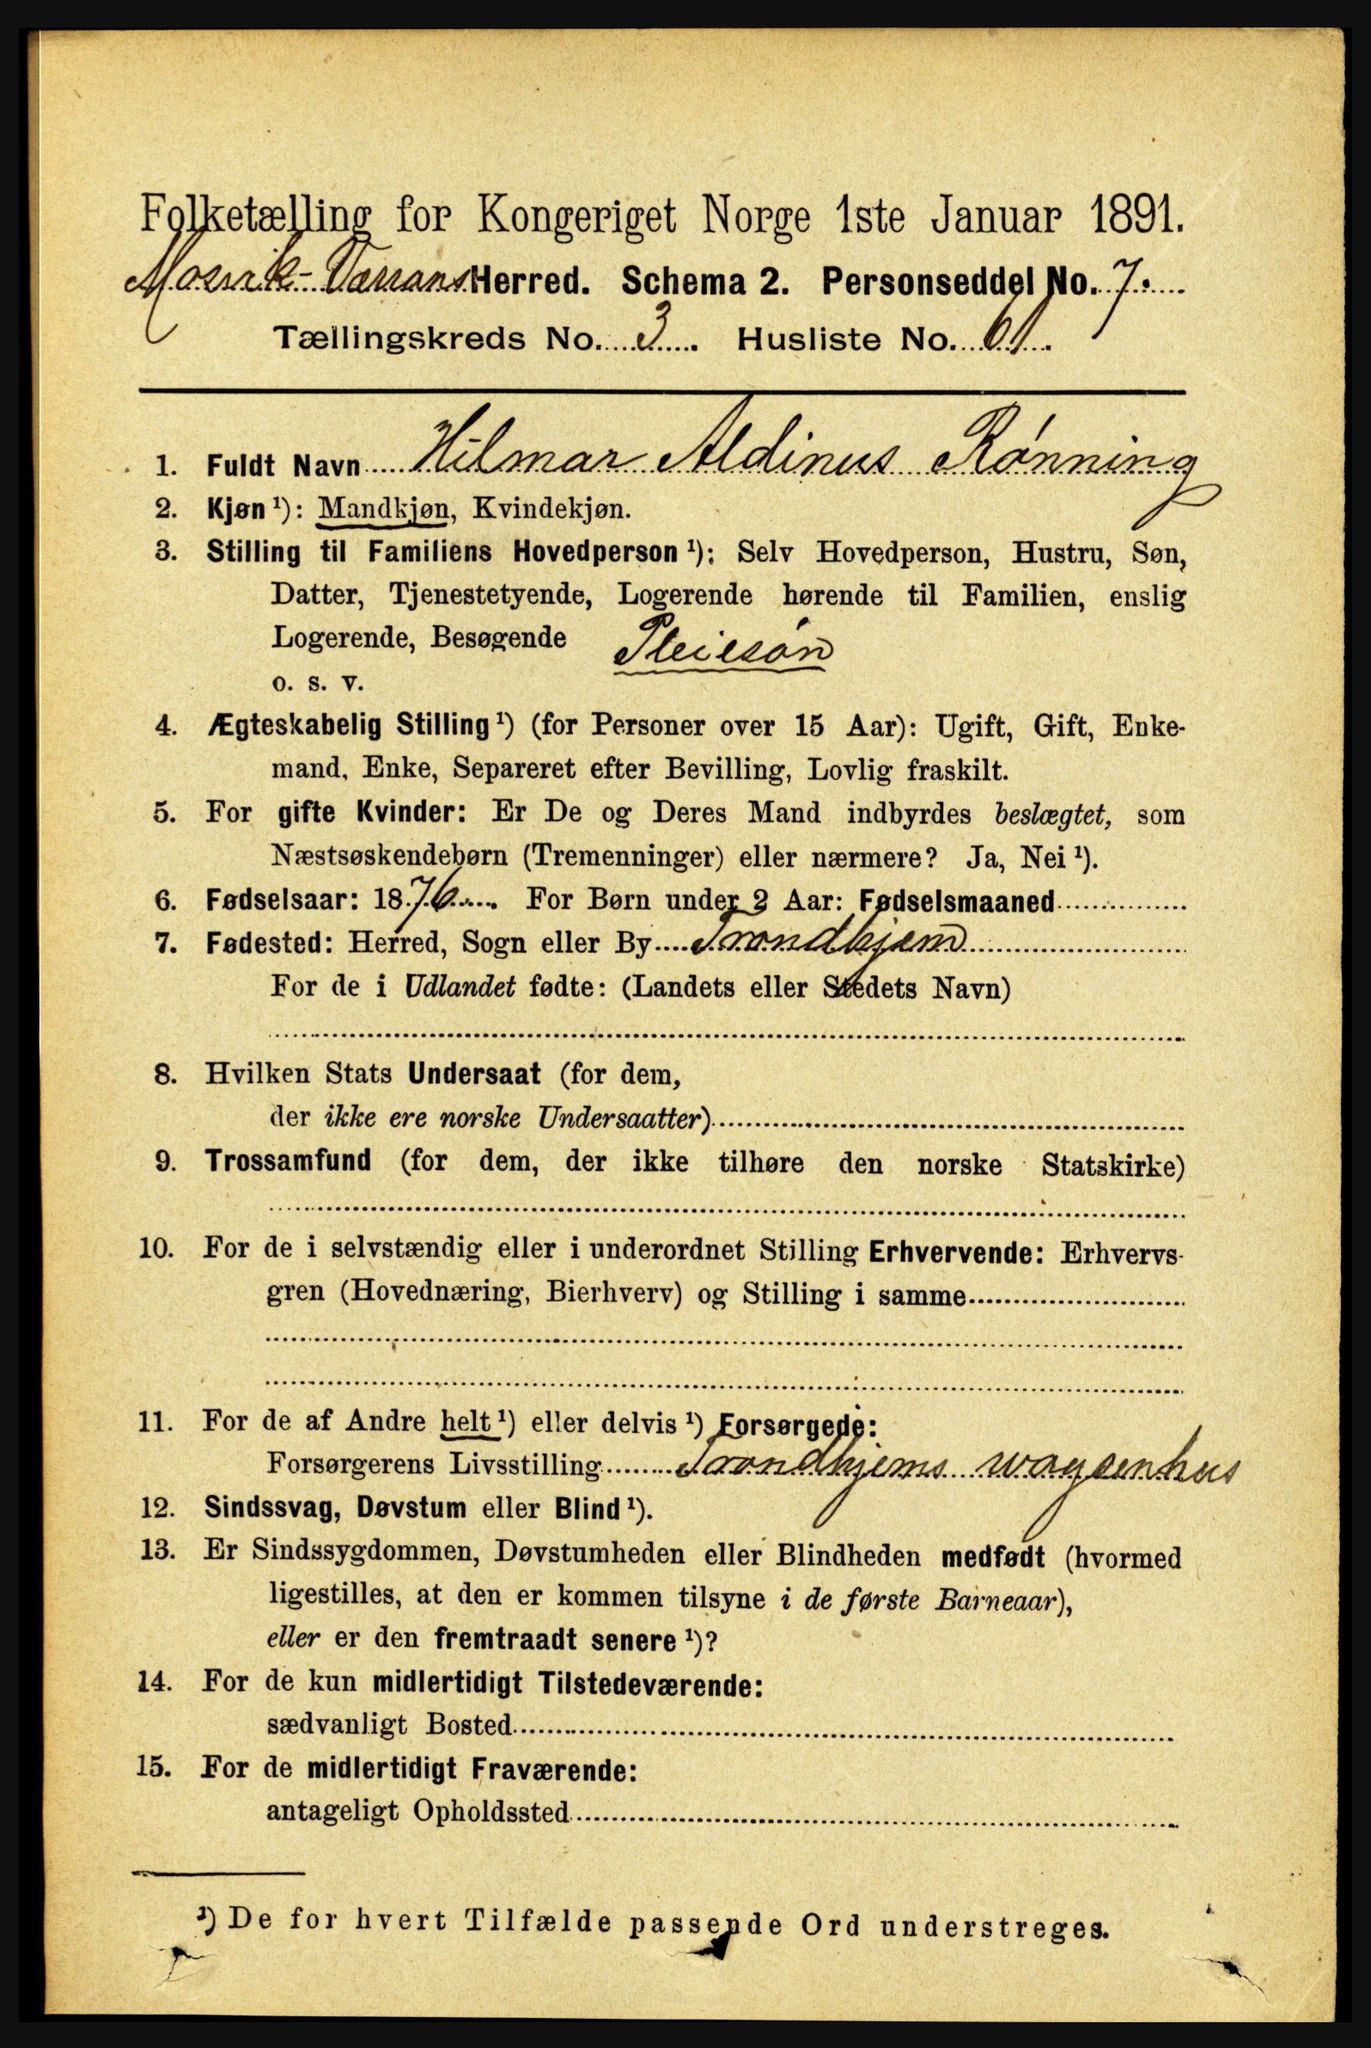 Folketælling for Kongeriget Norge 1ste Januar 1891.
Mosvik-Værrans Herred. Schema 2. Personseddel No. 7.
Tællingskreds No. 3. Husliste No. 61.
1. Fuldt Navn Hilmar Aldinus Rønning
2. Kjøn¹): Mandkjøn, Kvindekjøn.
3. Stilling til Familiens Hovedperson¹): Selv Hovedperson, Hustru, Søn,
Datter, Tjenestetyende, Logerende hørende til Familien, enslig
Logerende, Besøgende Pleiesøn
o. s. v.
4. Ægteskabelig Stilling¹) (for Personer over 15 Aar): Ugift, Gift, Enke-
mand, Enke, Separeret efter Bevilling, Lovlig fraskilt.
5. For gifte Kvinder: Er De og Deres Mand indbyrdes beslægtet, som
Næstsøskendebørn (Tremenninger) eller nærmere? Ja, Nei¹).
6. Fødselsaar: 1876. For Børn under 2 Aar: Fødselsmaaned
7. Fødested: Herred, Sogn eller By Trondhjem
For de i Udlandet fødte: (Landets eller Stedets Navn)
8. Hvilken Stats Undersaat (for dem,
der ikke ere norske Undersaatter)
9. Trossamfund (for dem, der ikke tilhøre den norske Statskirke)
10. For de i selvstændig eller i underordnet Stilling Erhvervende: Erhvervs-
gren (Hovednæring, Bierhverv) og Stilling i samme
11. For de af Andre helt¹) eller delvis¹) Forsørgede:
Forsørgerens Livsstilling Trondhjems waysenhus
12. Sindssvag, Døvstum eller Blind¹).
13. Er Sindssygdommen, Døvstumheden eller Blindheden medfødt (hvormed
ligestilles, at den er kommen tilsyne i de første Barneaar),
eller er den fremtraadt senere¹)?
14. For de kun midlertidigt Tilstedeværende:
sædvanligt Bosted
15. For de midlertidigt Fraværende:
antageligt Opholdssted
¹) De for hvert Tilfælde passende Ord understreges.